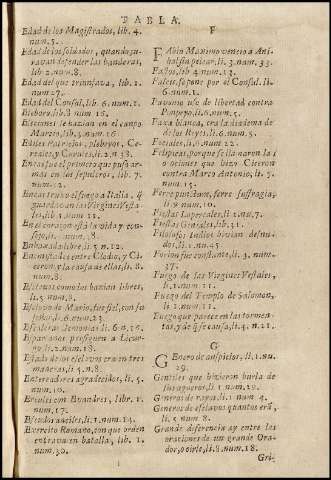 TABLA.
Edad de los Magistrados, lib. 4.
num. 5.
Edad de los soldados, quando ju-
ravan defender las banderas,
lib. 2. num. 8.
Edad del que triunfava, lib. 1.
num. 27.
Edad del Consul, lib. 6. num. 1.
lib. num. 16
Elecciones se hazian en el campo
Marzio, lib. 3. num. 16
Ediles Patricios, plebeyos, Ce-
reales, y Curules, li. 2. n. 13.
Eneas fue el primero que puso ar-
mas en los sepulcros, lib. 7.
num. 12.
Eneas truxo el fuego a Italia, q̃
guardavan las Virgines Vesta-
les, lib. 1. num. 11.
En el coraçon està la vida y con-
sejo, li. num. 8
Embaxada libre, li. 5. n. 12.
Enemistades entre Clodio, y Ci-
ceron, y la causa de ellas, li. 8.
num. 8.
Esclavos como los hazian libres,
li. 5. num. 8.
Esclavo de Mario, fue fiel, con su
señor, li. 6. num. 23.
Escaleras Gemonias li. 6. n. 16.
Espartanos persiguen a Licur-
go, li. 2. num. 18.
Estado de los esclavos era en tres
maneras, li. 5. n. 8.
Enterradores agradecidos, li. 5.
num. 10.
Ercules con Evandres, libr. 1.
num. 17.
Estados anciles, li. 1. num. 14.
Exercito Romano, con que orden
entrava en batalla, lib. 1.
num. 30.
F
FAbio Maximo vencio a Ani-
bal sin pelear, li. 3. num. 33.
Fastos, lib. 4. num. 13.
Fasces, insignia por el Consul. li.
6. num. 1.
Favonio uso de libertad contra
Pompeyo, li. 6. num. 5.
Faxa blanca, era la diadema de
de los Reyes. li. 6. num. 5.
Feciales, li. 6. num. 22.
Filipicas, porque se llamaron las
oraciones que hizo Ciceron
contra Marco Antonio, li. 5.
num. 15.
Ferre punctum, ferre suffragia,
li. 9. num. 10.
Fiestas Lupercales, li. 1. nu. 7.
Fiestas Geniales, lib. 31.
Filosofos Indios bivian desnu-
dos, li. 1. nu. 45
Focion fue constante, li. 3. num.
37.
Fuego de las Virgines Vestales,
li. 1. num. 11.
Fuego del Templo de Salomon,
li. 1. num. 11.
Fuego que parece en las tormen-
tas, y de q̃ se causa, li. 4. n. 21.
G
GEnero de auspicios, li. 1. nu.
29.
Gentiles que hizieron burla de
sus agueros, li. 1. num. 29.
Generos de togas, li. 1. num. 4.
Generos de esclavos quantos erã,
li. 5. num. 8.
Grande diferencia ay entre las
oraciones de un grande Ora-
dor, o oirle, li. 8. num. 18.
Gri-